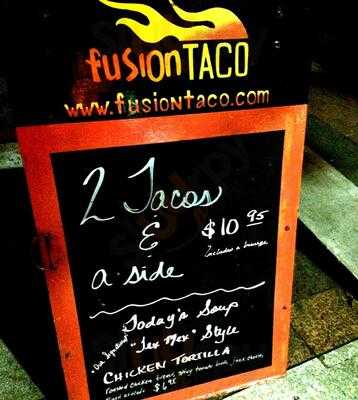 fusionTACO
www.fusiontaco.com
2 Tacos
&
a side
$10 95
Includes a beverage
Today's Soup
"Tex Mex" Style
CHICKEN TORTILLA
$6.95